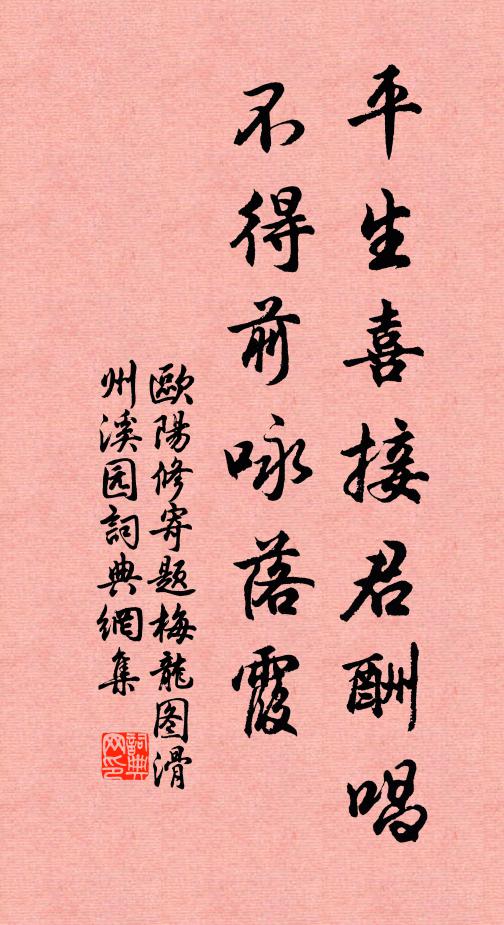 平生喜接君酬唱
不得前咏落霞
歐陽修寄题梅龍图滑
州溪园詞典網集
詞典
网印